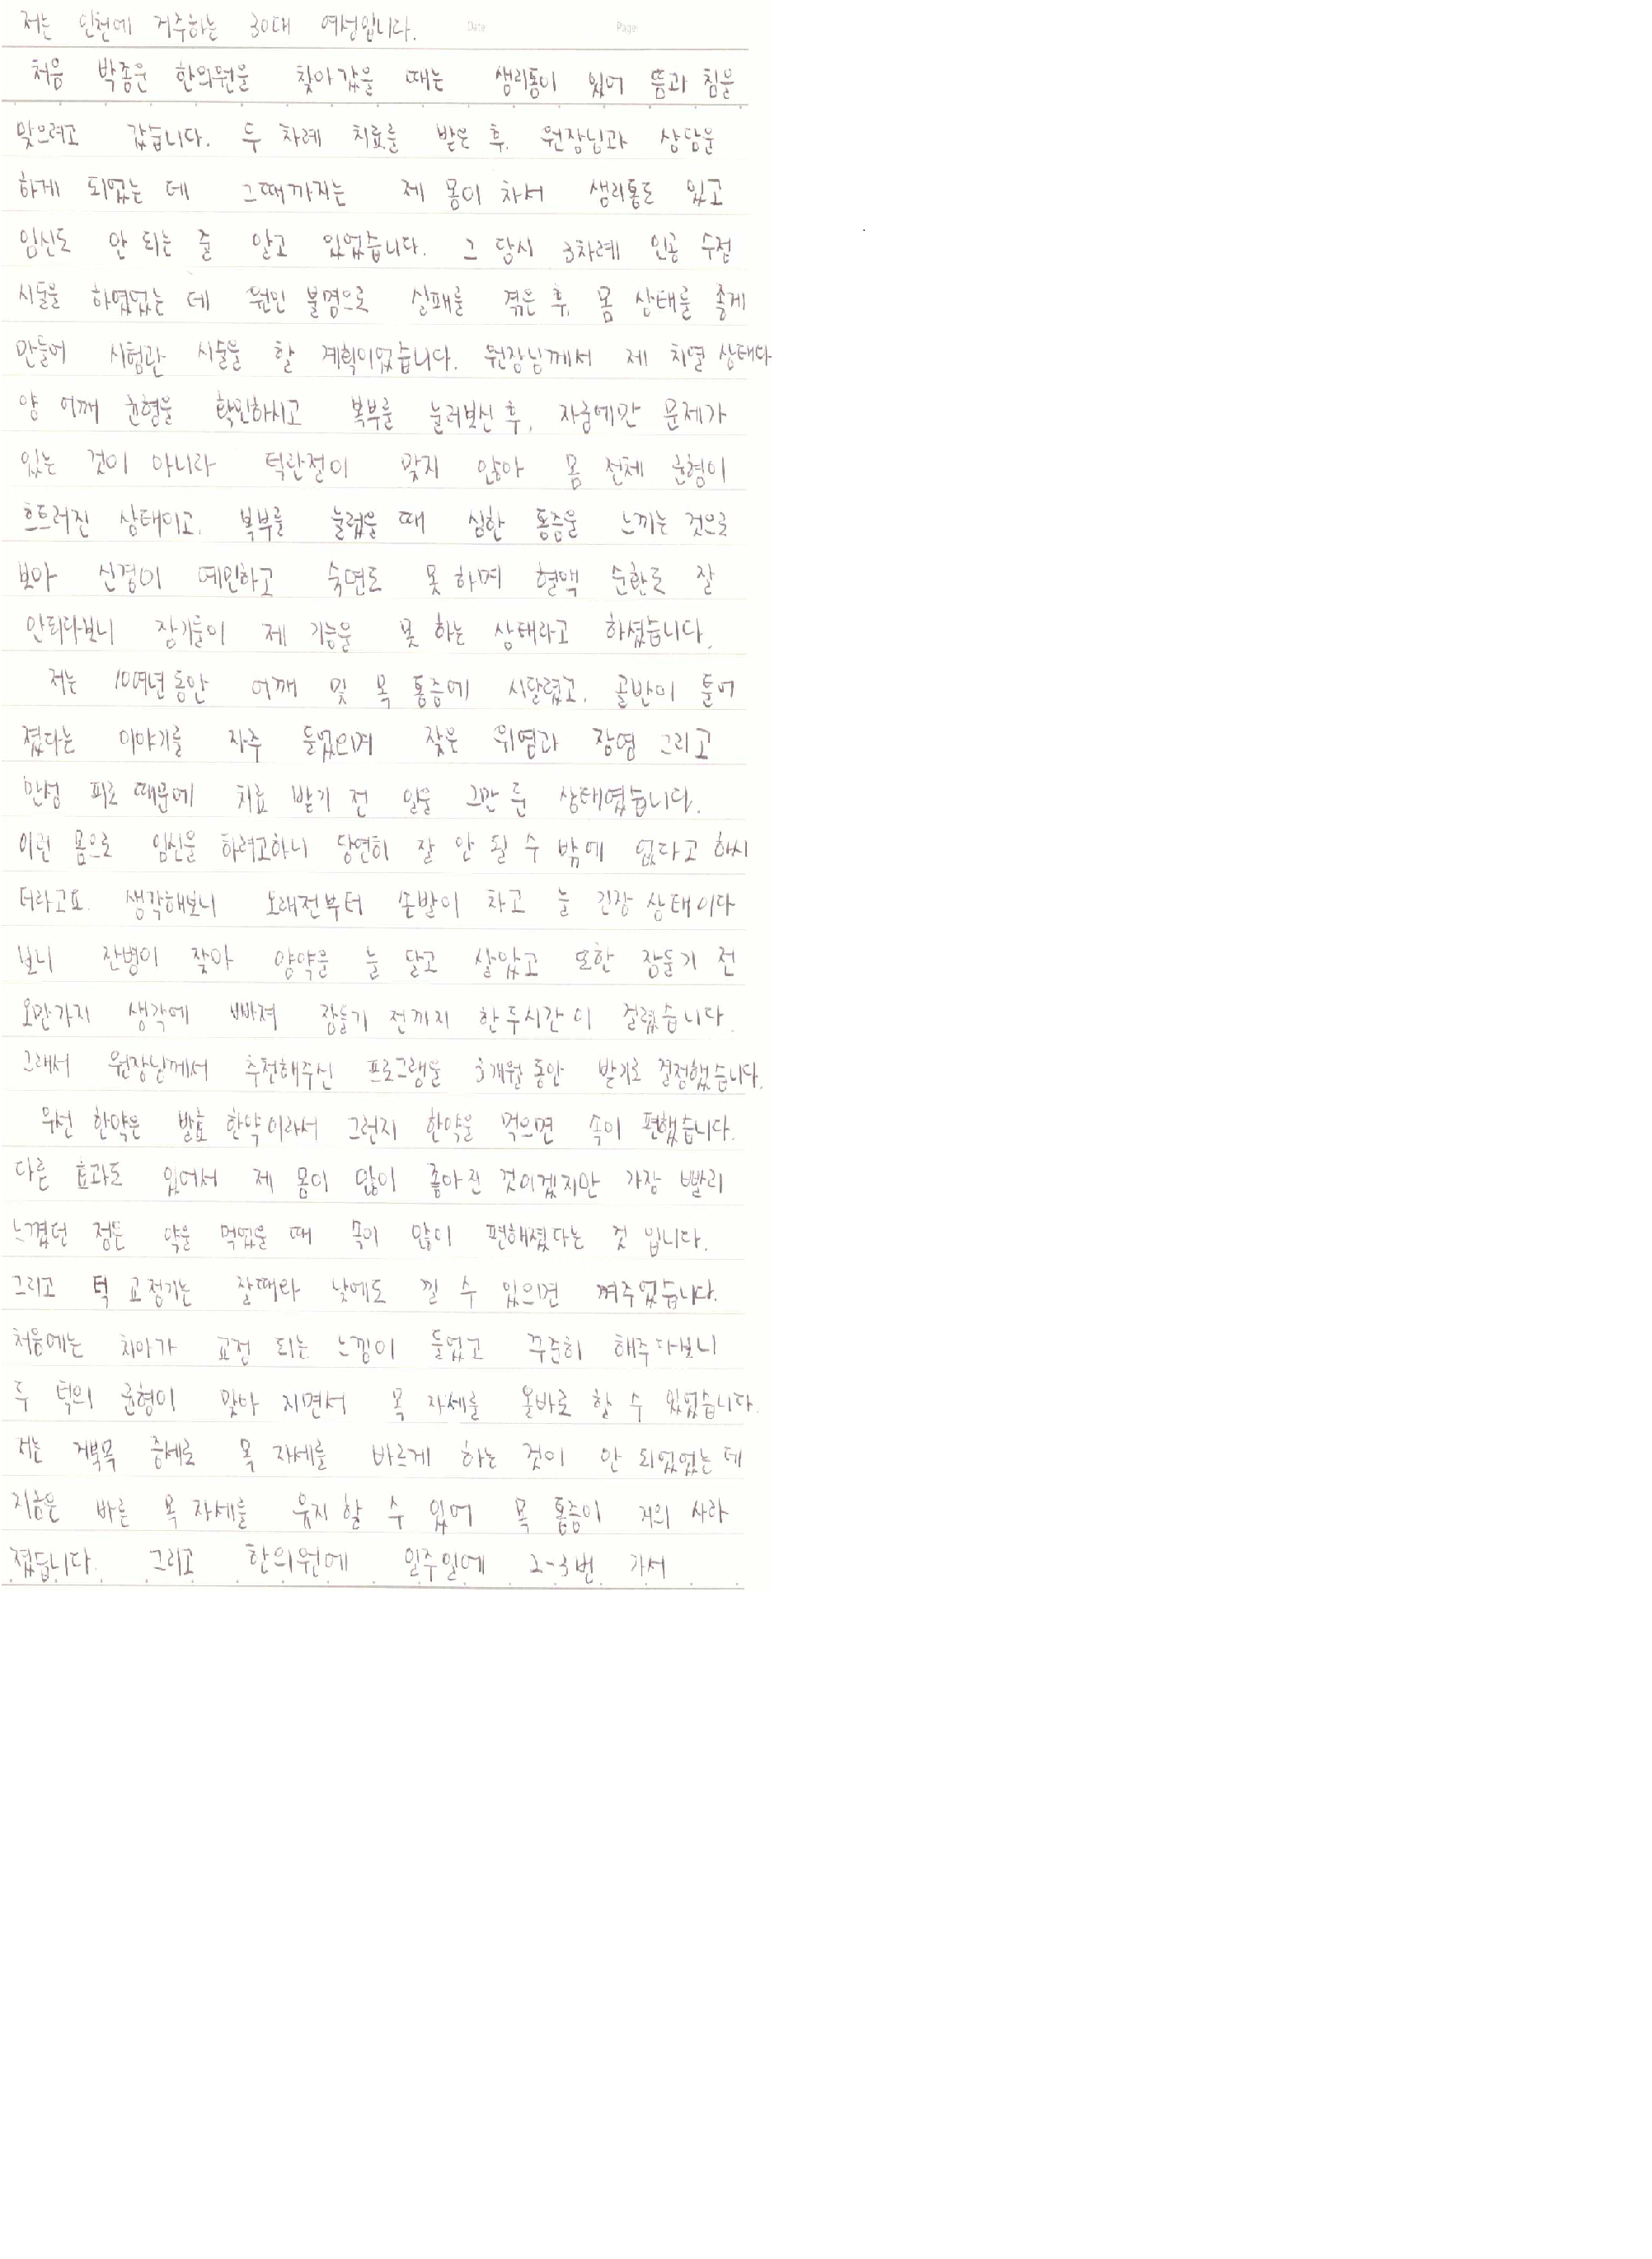 저는 인천에 거주하는 30대 여성입니다. Date Page
처음 박종운 한의원을 찾아갔을 때는 생리통이 있어 뜸과 침을
맞으려고 갔습니다. 두 차례 치료를 받은 후, 원장님과 상담을
하게 되었는 데 그때까지는 제 몸이 차서 생리통도 있고
임신도 안 되는 줄 알고 있었습니다. 그 당시 3차례 인공 수정
시술을 하였었는 데 원인 불명으로 실패를 겪은 후, 몸 상태를 좋게
만들어 시험관 시술을 할 계획이었습니다. 원장님께서 제 치열 상태와
양 어깨 균형을 확인하시고 복부를 눌러보신 후, 자궁에만 문제가
있는 것이 아니라 턱관절이 맞지 않아 몸 전체 균형이
흐트러진 상태이고, 복부를 눌렀을 때 심한 통증을 느끼는 것으로
보아 신경이 예민하고 숙면도 못 하며 혈액 순환도 잘
안되다보니 장기들이 제 기능을 못 하는 상태라고 하셨습니다.
저는 10여년 동안 어깨 및 목 통증에 시달렸고, 골반이 틀어
졌다는 이야기를 자주 들었으며 잦은 위염과 장염 그리고
만성 피로 때문에 치료 받기 전 일을 그만 둔 상태였습니다.
이런 몸으로 임신을 하려고하니 당연히 잘 안 될 수 밖에 없다고 하시
더라고요. 생각해보니 오래전부터 손발이 차고 늘 긴장 상태이다
보니 잔병이 잦아 양약을 늘 달고 살았고 또한 잠들기 전
오만가지 생각에 빠져 잠들기 전까지 한두시간이 걸렸습니다.
그래서 원장님께서 추천해주신 프로그램을 3개월 동안 받기로 결정했습니다.
우선 한약은 발효 한약이라서 그런지 한약을 먹으면 속이 편했습니다.
다른 효과도 있어서 제 몸이 많이 좋아진 것이겠지만 가장 빨리
느꼈던 점은 약을 먹었을 때 속이 많이 편해졌다는 것 입니다.
그리고 턱 교정기는 잘때와 낮에도 낄 수 있으면 껴주었습니다.
처음에는 치아가 교정 되는 느낌이 들었고 꾸준히 해주다보니
두 턱의 균형이 맞아 지면서 목 자세를 올바로 할 수 있었습니다.
저는 거북목 증세로 목 자세를 바르게 하는 것이 안 되었었는 데
지금은 바른 목 자세를 유지 할 수 있어 목 통증이 거의 사라
졌습니다. 그리고 한의원에 일주일에 2-3번 가서